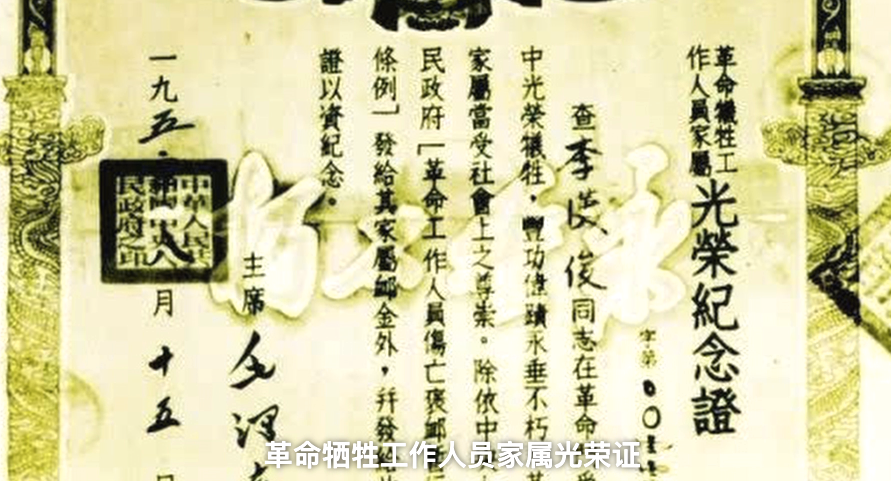 革命犧牲工
作人員家屬
光榮紀念證
字第
查李漢俊同志在革命
中光榮犧牲，豐功偉蹟永垂不朽
家屬當受社會上之尊崇。除依中
民政府「革命工作人員傷亡褒卹
條例」發給其家屬卹金外，并發給
證以資紀念。
主席毛澤
一九五
月十五日
中華人民共
和國中央人
民政府之印
永垂不朽
革命牺牲工作人员家属光荣证